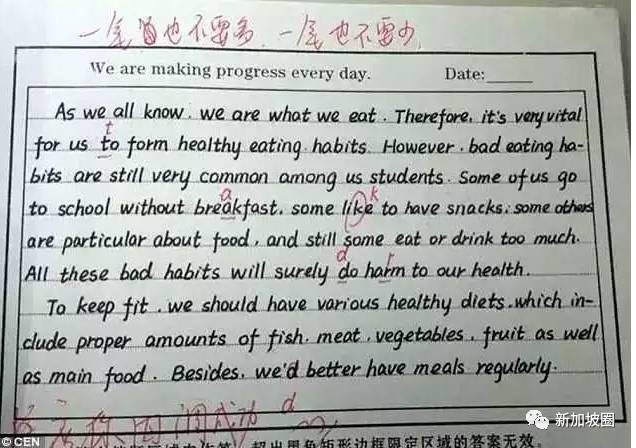 一笔 也不要多、一笔也不要少
We are making progress every day. Date:
As we all know, we are what we eat. Therefore, it's very vital
t
for us to form healthy eating habits. However, bad eating ha-
bits are still very common among us students. Some of us go
a k
to school without breakfast, some like to have snacks; some others
are particular about food, and still some eat or drink too much.
d r
All these bad habits will surely do harm to our health.
To keep fit, we should have various healthy diets, which in-
clude proper amounts of fish, meat, vegetables, fruit as well
as main food. Besides, we'd better have meals regularly.
d
超出黑色矩形边框限定区域的答案无效
© CEN
新加坡圈